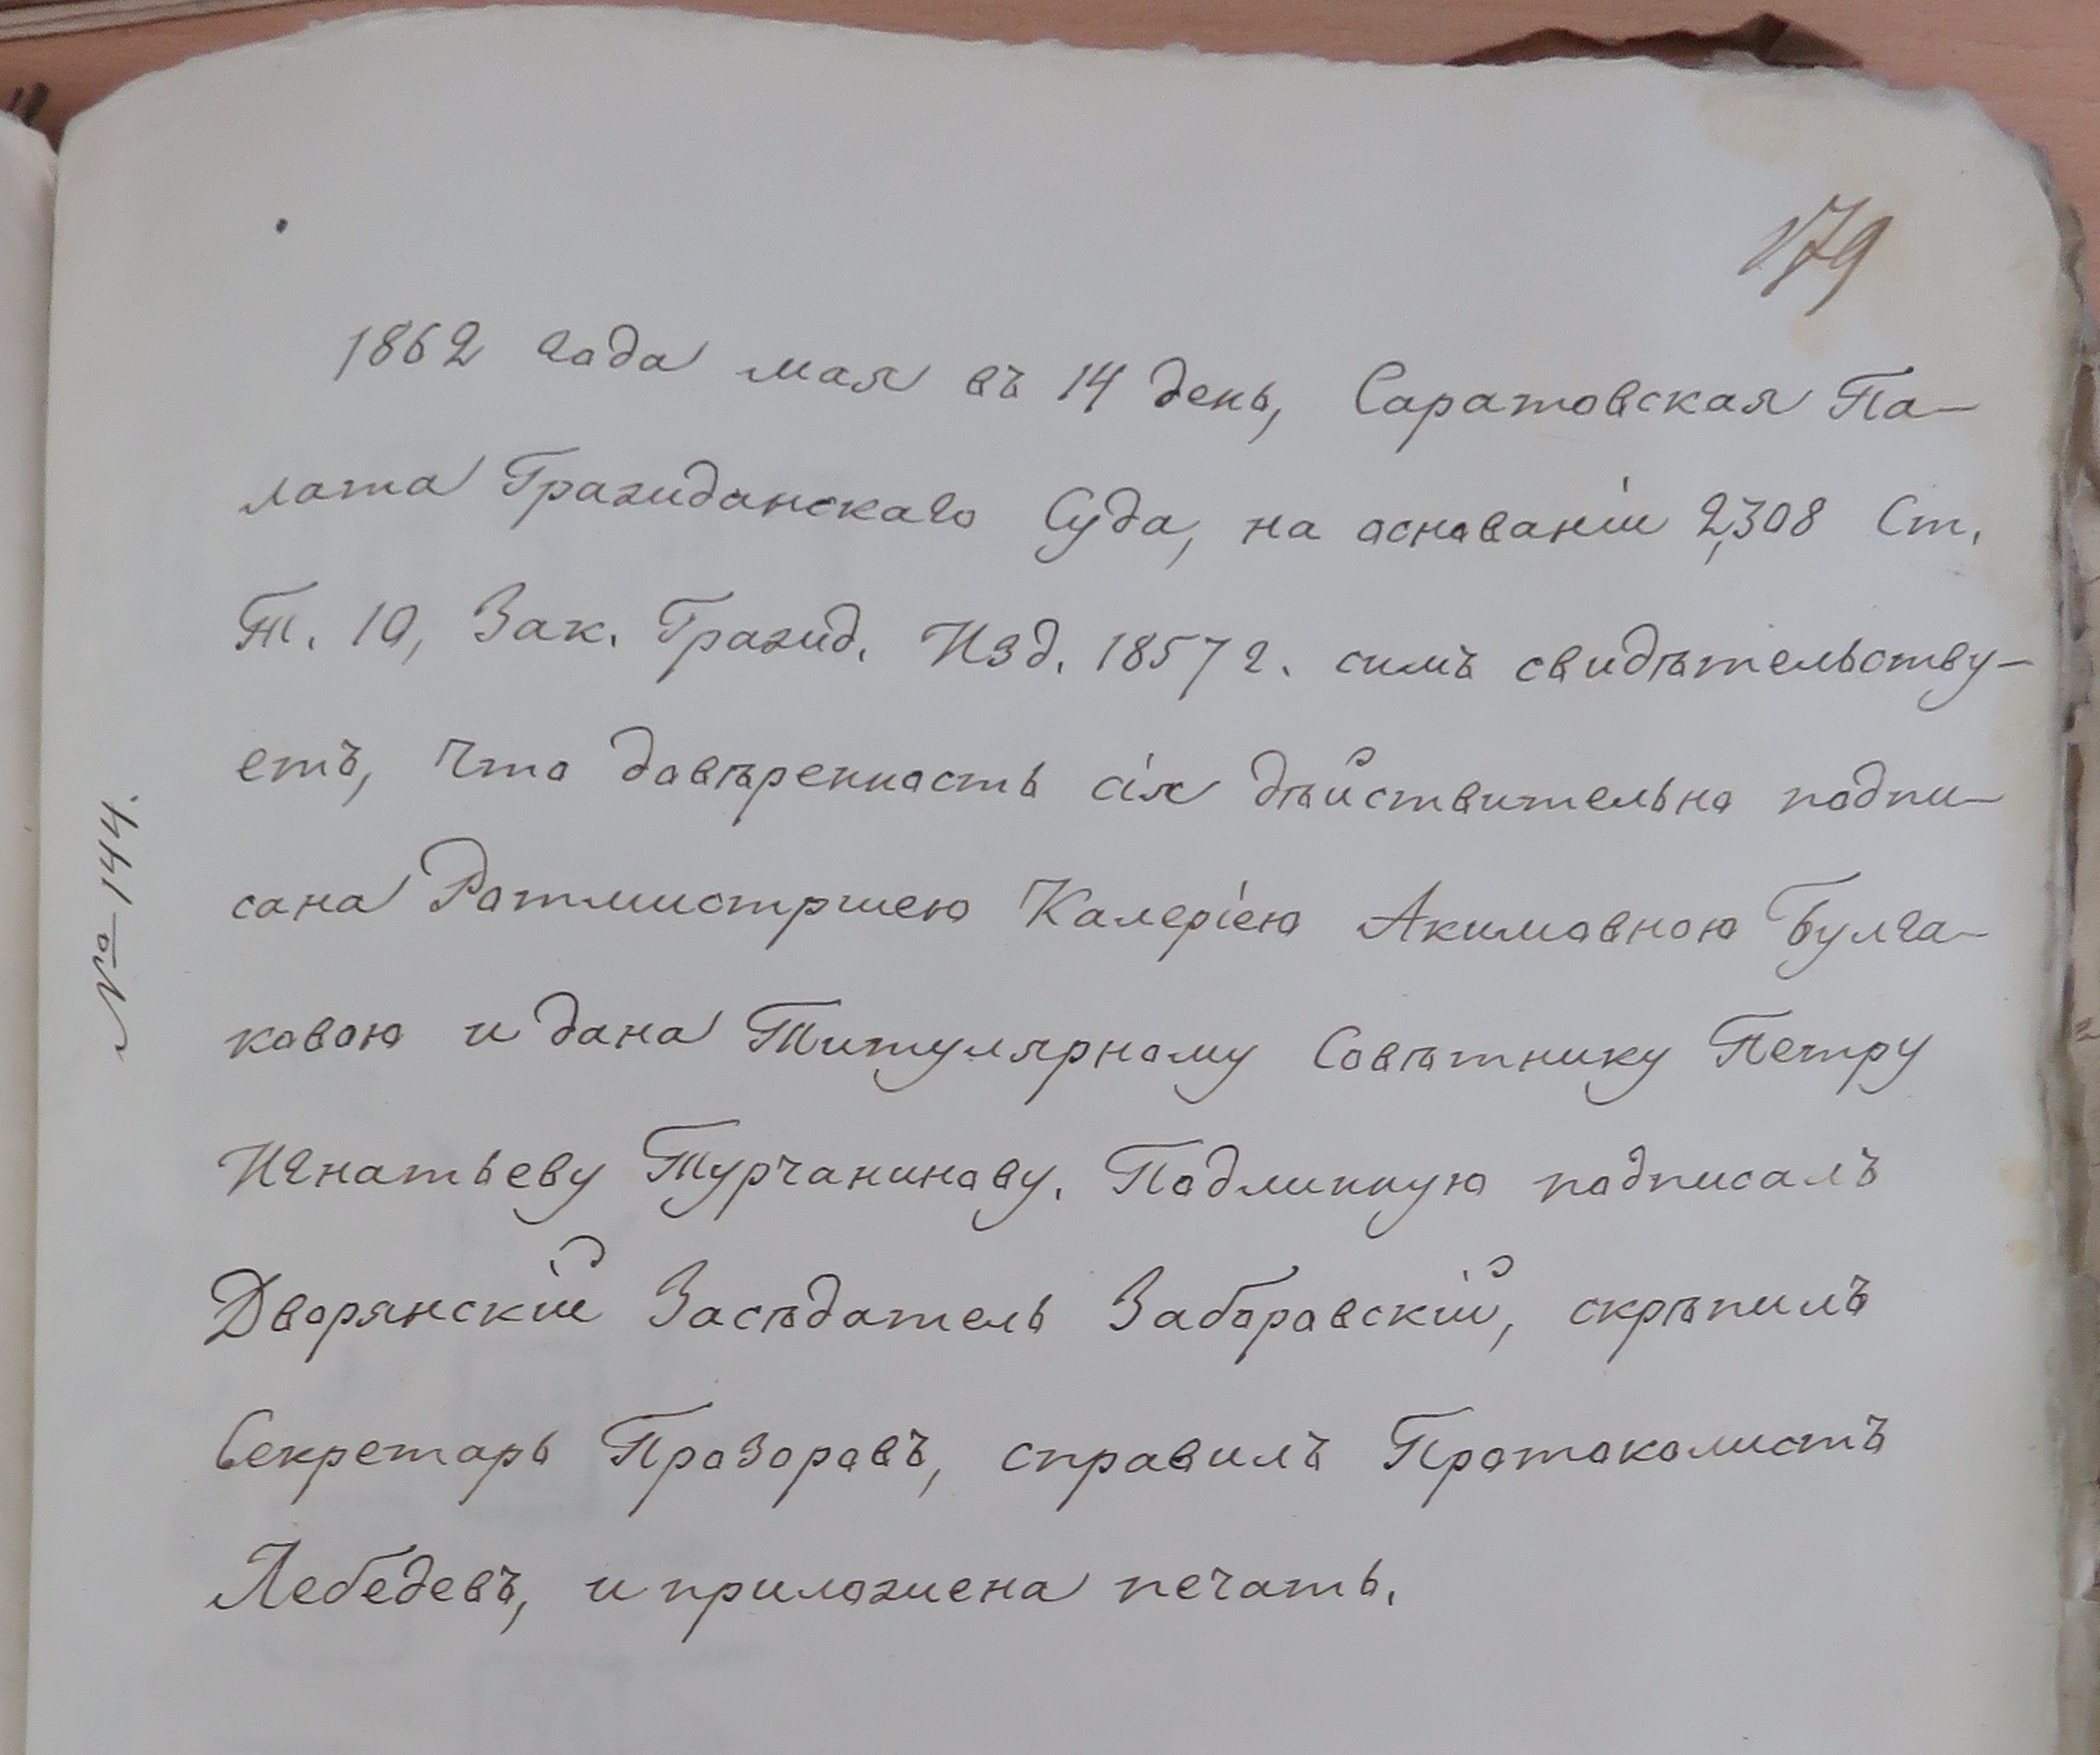 179
1862 года мая въ 14 день, Саратовская Па-
лата Гражданскаго Суда, на основаніи 2,308 Ст.
Т. 10, Зак. Гражд. Изд. 1857 г. симъ свидѣтельству-
етъ, что довѣренность сія дѣйствительно подпи-
сана Ротмистршею Калеріею Акимовною Булга-
ковою и дана Титулярному Совѣтнику Петру
Игнатьеву Турчанинову. Подлинную подписалъ
Дворянскій Засѣдатель Заборовскій, скрѣпилъ
Секретарь Прозоровъ, справилъ Протоколистъ
Лебедевъ, и приложена печать.
№ 144.